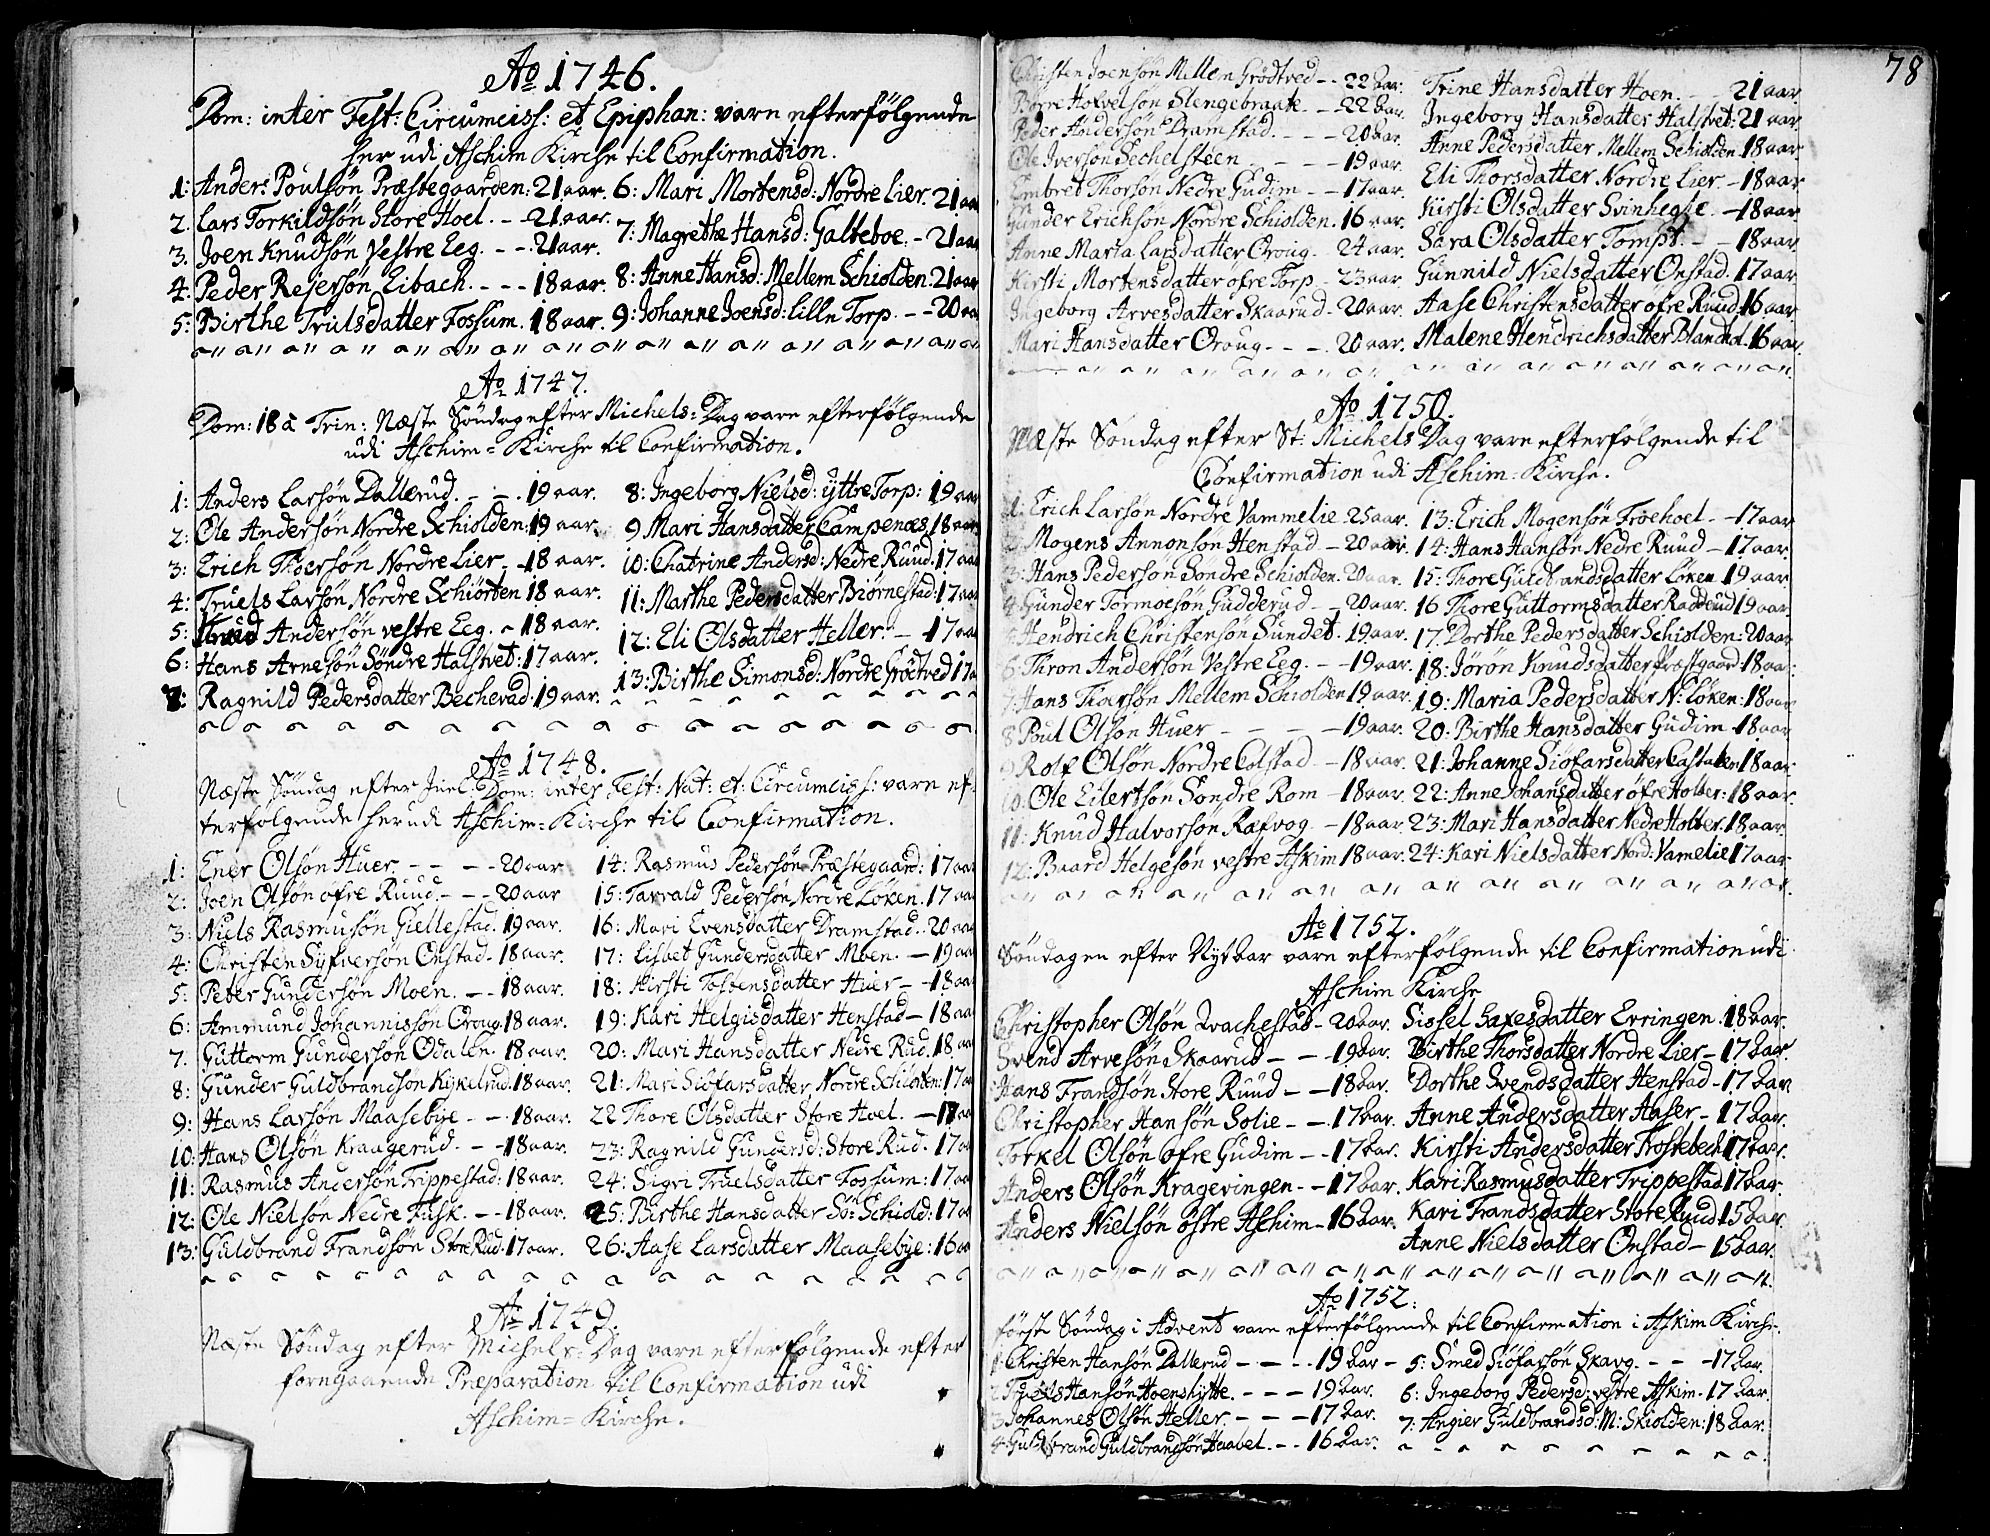 Ao 1746.
Dom: inter Fest: Circumciss: et Epiphan: varn efterfølgende
her udi Aschim Kirche til Confirmation.
1: Anders Poulsøn Præstegaarden: 21 aar.
2. Lars Torkildsøn Store Hoel. - - 21 aar.
3. Joen Knudsøn Vestre Eeg. - - 21 aar.
4: Peder Rejersøn Eibach. - - - 18 aar.
5: Birthe Trulsdatter Fossum. 18 aar.
6: Mari Mortensd: Nordre Lier. 21 aar
7: Magrethe Hansd: Galteboe. - 21 aar
8: Anne Hansd: Mellem Schiolden: 21 aar
9: Johanne Joensd: Lille Torp. - - 20 aar
Ao 1747.
Dom: 18 à Trin: Næste Søndag efter Michels-Dag varn efterfølgende
udi Aschim-Kirche til Confirmation.
1: Anders Larsøn Dallerud. - - 19 aar.
2: Ole Andersøn Nordre Schiolden: 19 aar.
3: Erich Thorsøn Nordre Lier - 18 aar.
4: Truels Larsøn Nordre Schiorten 18 aar.
5: Knud Andersøn vestre Eeg. - 18 aar.
6: Hans Arnesøn Søndre Halstvet: 17 aar.
7: Ragnild Pedersdatter Becherud: 19 aar.
8: Ingeborg Nielsd: ÿttre Torp: 19 aar
9 Mari Hansdatter Campenæs. 18 aar
10: Chatrine Andersd: Nedre Ruud. 17 aar
11: Marthe Pedersdatter Biørnestad: 17 aar
12: Eli Olsdatter Heller. - 17 aar
13: Birthe Simonsd: Nordre Grøtved 17 a
Ao 1748.
Næste Søndag efter Juel: Dom: inter Fest: Nat: et Circumciss: varn ef-
terfølgende her udi Aschim-Kirche til Confirmation.
1: Ener Olsøn Huer. - - - 20 aar
2: Joen Olsøn øfre Ruud. - - 20 aar
3: Niels Rasmusøn Giellestad. 19 aar.
4: Christen Syfversøn Onstad. 18 aar.
5: Peter Gundersøn Moen. - - 18 aar.
6: Ammund Johannissøn Oroug. 18 aar.
7. Guttorm Gundersøn Odalen. 18 aar.
8: Gunder Guldbrandsøn Kykelrud: 18 aar.
9: Hans Larsøn Maasebye - - 18 aar.
10: Hans Olsøn Kraagerud. - - 18 aar.
11: Rasmus Andersøn Trippestad: 18 aar.
12: Ole Nielsøn Nedre Fusk. - - 18 aar.
13: Guldbrand Frandsøn Store Rud. 17 aar.
14: Rasmus Pedersøn Præstegaard: 17 aar
15: Tarrald Pedersøn Nordre Løken. 17 aar
16: Mari Evensdatter Dramstad. 20 aar
17: Lisbet Gundersdatter Moen. - 19 aar
18: Kirsti Tostensdatter Huer - - 18 aar
19: Kari Helgisdatter Henstad - 18 aar
20: Mari Hansdatter Nedre Rud. 18 aar
21: Mari Siofarsdatter Nordre Schiolden: 17 aar
22 Thore Olsdatter Store Hoel. - 17 aar
23: Ragnild Gundersd: Store Rud. 17 a
24: Sigri Truelsdatter Fossum: 17 aar
25: Birthe Hansdatter Sø: Schiold: 17 a
26: Aase Larsdatter Maasebye: 16 aar
Ao 1749.
Næste Søndag efter Michels-Dag varn efterfølgende efter
forregaaende Præparation til Confirmation udi
Aschim-Kirche.
78
Christen Joensøn Mellem Grødtved - - 22 aar.
Børre Hofvelsøn Slengebraate - - 22 aar.
Peder Andersøn Dramstad. - - - 20 aar.
Ole Iversøn Sechelsteen - - - 19 aar.
Embret Thorsøn Nedre Gudim - - 17 aar.
Gunder Erichsøn Nordre Schiolden. 16 aar.
Anne Marta Larsdatter Oroug. - 24 aar.
Kirsti Mortensdatter øfre Torp - 23 aar.
Ingeborg Arvesdatter Skaarud - 20 aar.
Mari Hansdatter Oroug - - - 20 aar.
Trine Hansdatter Hoen. - - 21 aar.
Ingeborg Hansdatter Halstvet: 21 aar.
Anne Pedersdatter Mellem Schiolden. 18 aar.
Eli Thorsdatter Nordre Lier. - 18 aar
Kirsti Olsdatter Svinhegle. - 18 aar
Sara Olsdatter Tompt. - - 18 aar.
Gunnild Nielsdatter Onstad. 17 aar
Aase Christensdatter øfre Ruud. 16 aar.
Malene Hendrichsdatter 16 aar.
Ao 1750.
Næste Søndag efter St: Michels Dag varn efterfølgende til
Confirmation udi Aschim-Kirche.
1: Erich Larsøn Nordre Vammelie 25 aar.
2: Mogens Annonsøn Henstad - 20 aar.
3: Hans Pedersøn Søndre Schiolden. 20 aar.
4: Gunder Tormoesøn Gudderud - - 20 aar.
5: Hendrich Christensøn Sundet. 19 aar.
6: Thron Andersøn Vestre Eeg. - - 19 aar.
7: Hans Thorsøn Mellem Schiolden 19 aar.
8 Poul Olsøn Huer - - - - 19 aar.
9 Rolf Olsøn Nordre Colstad - 18 aar.
10: Ole Eilertsøn Søndre Rom - 18 aar.
11: Knud Halvorsøn Ræfvog. - 18 aar.
12: Baard Helgesøn vestre Askim 18 aar.
13: Erich Mogensøn Froehoel - 17 aar
14: Hans Hansøn Nedre Ruud - 17 aar.
15: Thore Guldbrandsdatter Løken 19 aar
16 Thore Guttormsdatter Raddeud 19 aar
17. Dorthe Pedersdatter Schiolden: 20 aar
18: Jørøn Knudsdatter Præstgaard: 18 aar.
19: Maria Pedersdatter N: Løken: 18 aar
20: Birthe Hansdatter Gudim - 18 aar
21: Johanne Siøfarsdatter Castaken 18 aar
22: Anne Johansdatter øfre Holter: 18 aar.
23: Mari Hansdatter Nedre Holter. 18 aar.
24: Kari Nielsdatter Nord: Vamelie 17 aar
Ao 1752.
Søndagen efter Nytaar varn efterfølgende til Confirmation udi
Aschim Kirche
Christopher Olsøn Qvachestad - 20 aar.
Svend Arvesøn Skaarud - - - 19 aar.
Hans Frandsøn Store Ruud - - 18 aar.
Christopher Hansøn Solie - - 17 aar.
Torkel Olsøn øfre Gudim - - 17 aar.
Anders Olsøn Kragevingen - - 17 aar.
Anders Nielsøn østre Aschim - 16 aar.
Sissel Saxesdatter Evringen. 18 aar.
Birthe Thorsdatter Nordre Lier - 17 aar
Dorthe Svendsdatter Henstad - 17 aar
Anne Andersdatter Haser - 17 aar.
Kirsti Andersdatter Frostebech 17 aar.
Kari Rasmusdatter Trippestad 17 aar.
Kari Frandsdatter Store Ruud 15 aar.
Anne Nielsdatter Onstad - 15 aar.
Ao 1752:
første Søndag i Advent varn efterfølgende til Confirmation i Askim Kirche.
1 Christen Hansøn Dallerud - - - 19 aar -
2 Truels Hansøn Hoenshytte. - - - 19 aar.
3 Johannes Olsøn Heller. - - - 17 aar.
4: Guldbrand Guldbrandsøn Haabel. - - 16 aar.
5: Smed Siøfarsøn Skavg. - - - 17 aar.
6: Ingeborg Pedersd: vestre Askim - 17 aar.
7: Angier Guldbrandsd: M: Skiolden: 18 aar.